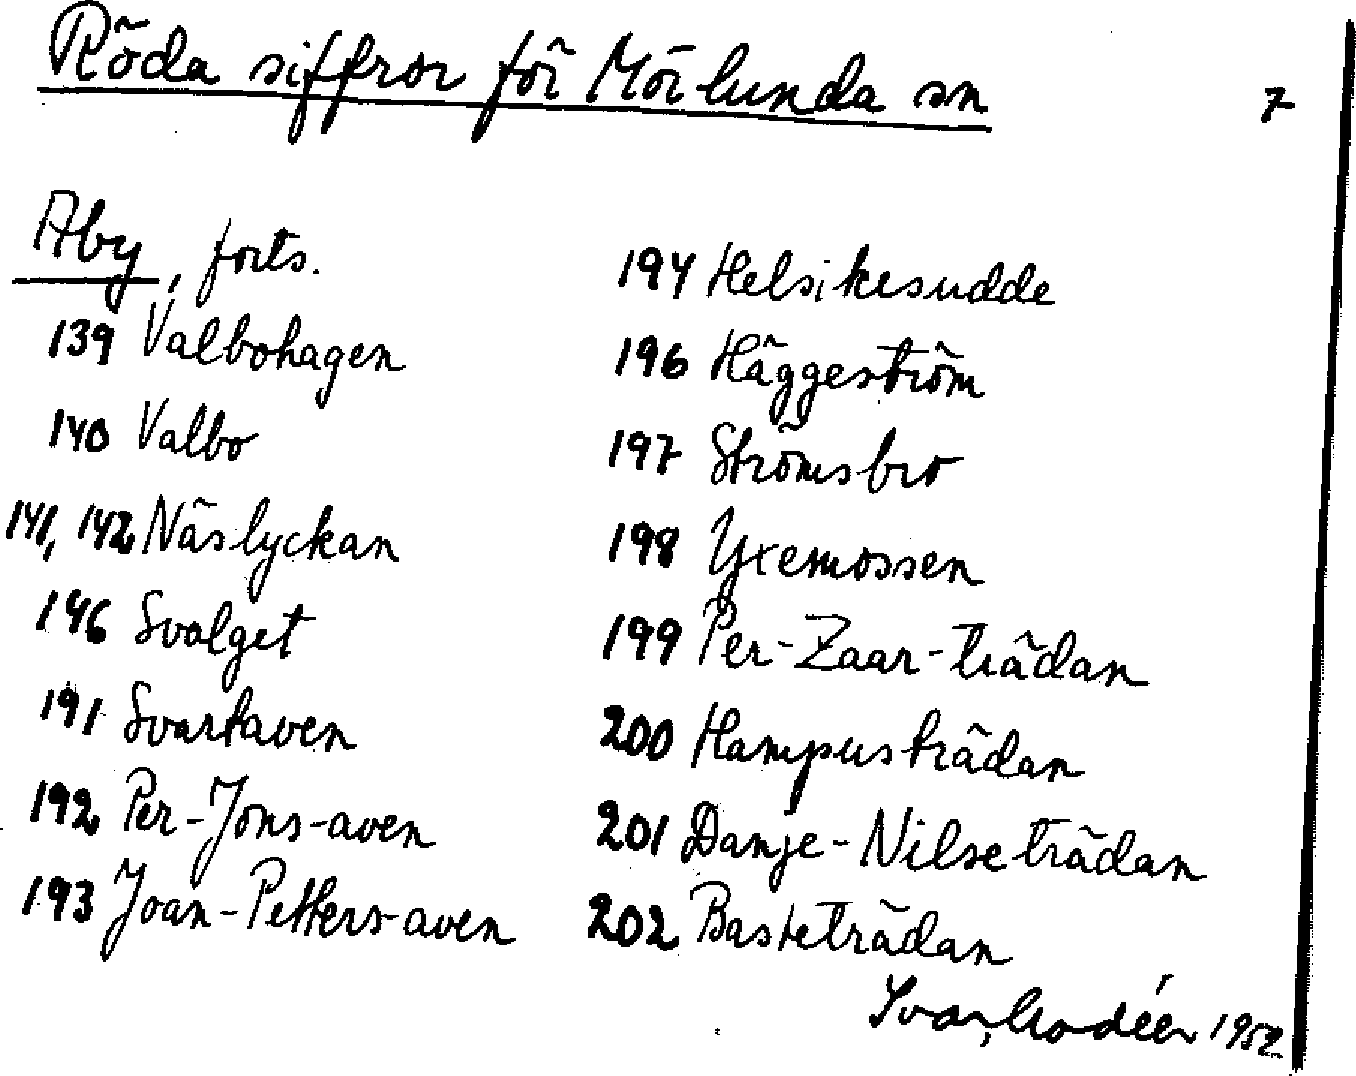 Röda siffror för Mörlunda sn
7
Åby, forts.
139 Valbohagen
140 Valbo
141, 142 Näslyckan
146 Svalget
191 Svartaven
192 Per-Jons-aven
193 Joan-Petters-aven
194 Helsikesudde
196 Häggeström
197 Strömsbro
198 Yxemossen
199 Per-Zaar-trädan
200 Hampusträdan
201 Danje-Nilseträdan
202 Basteträdan
Ivar Modéer 1952